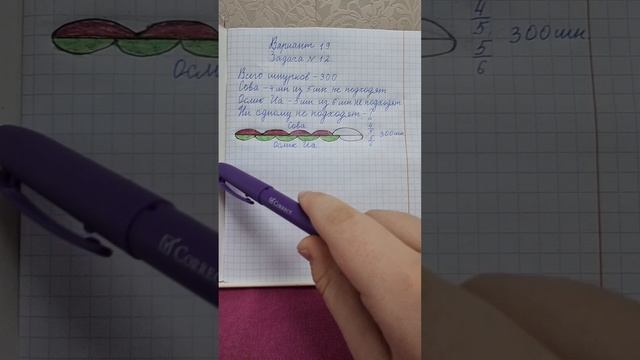 Вариант 19
Задача №12
Всего шнурков - 300
Сова - 4 шн из 5 шн не подходят
Ослик Иа - 5 шн из 6 шн не подходят
Ни одному не подходят - ?
Сова
4
5
5
6
300 шн
Ослик Иа
CORRECT
4
5
5
6
300 шн
Осли
CORREC